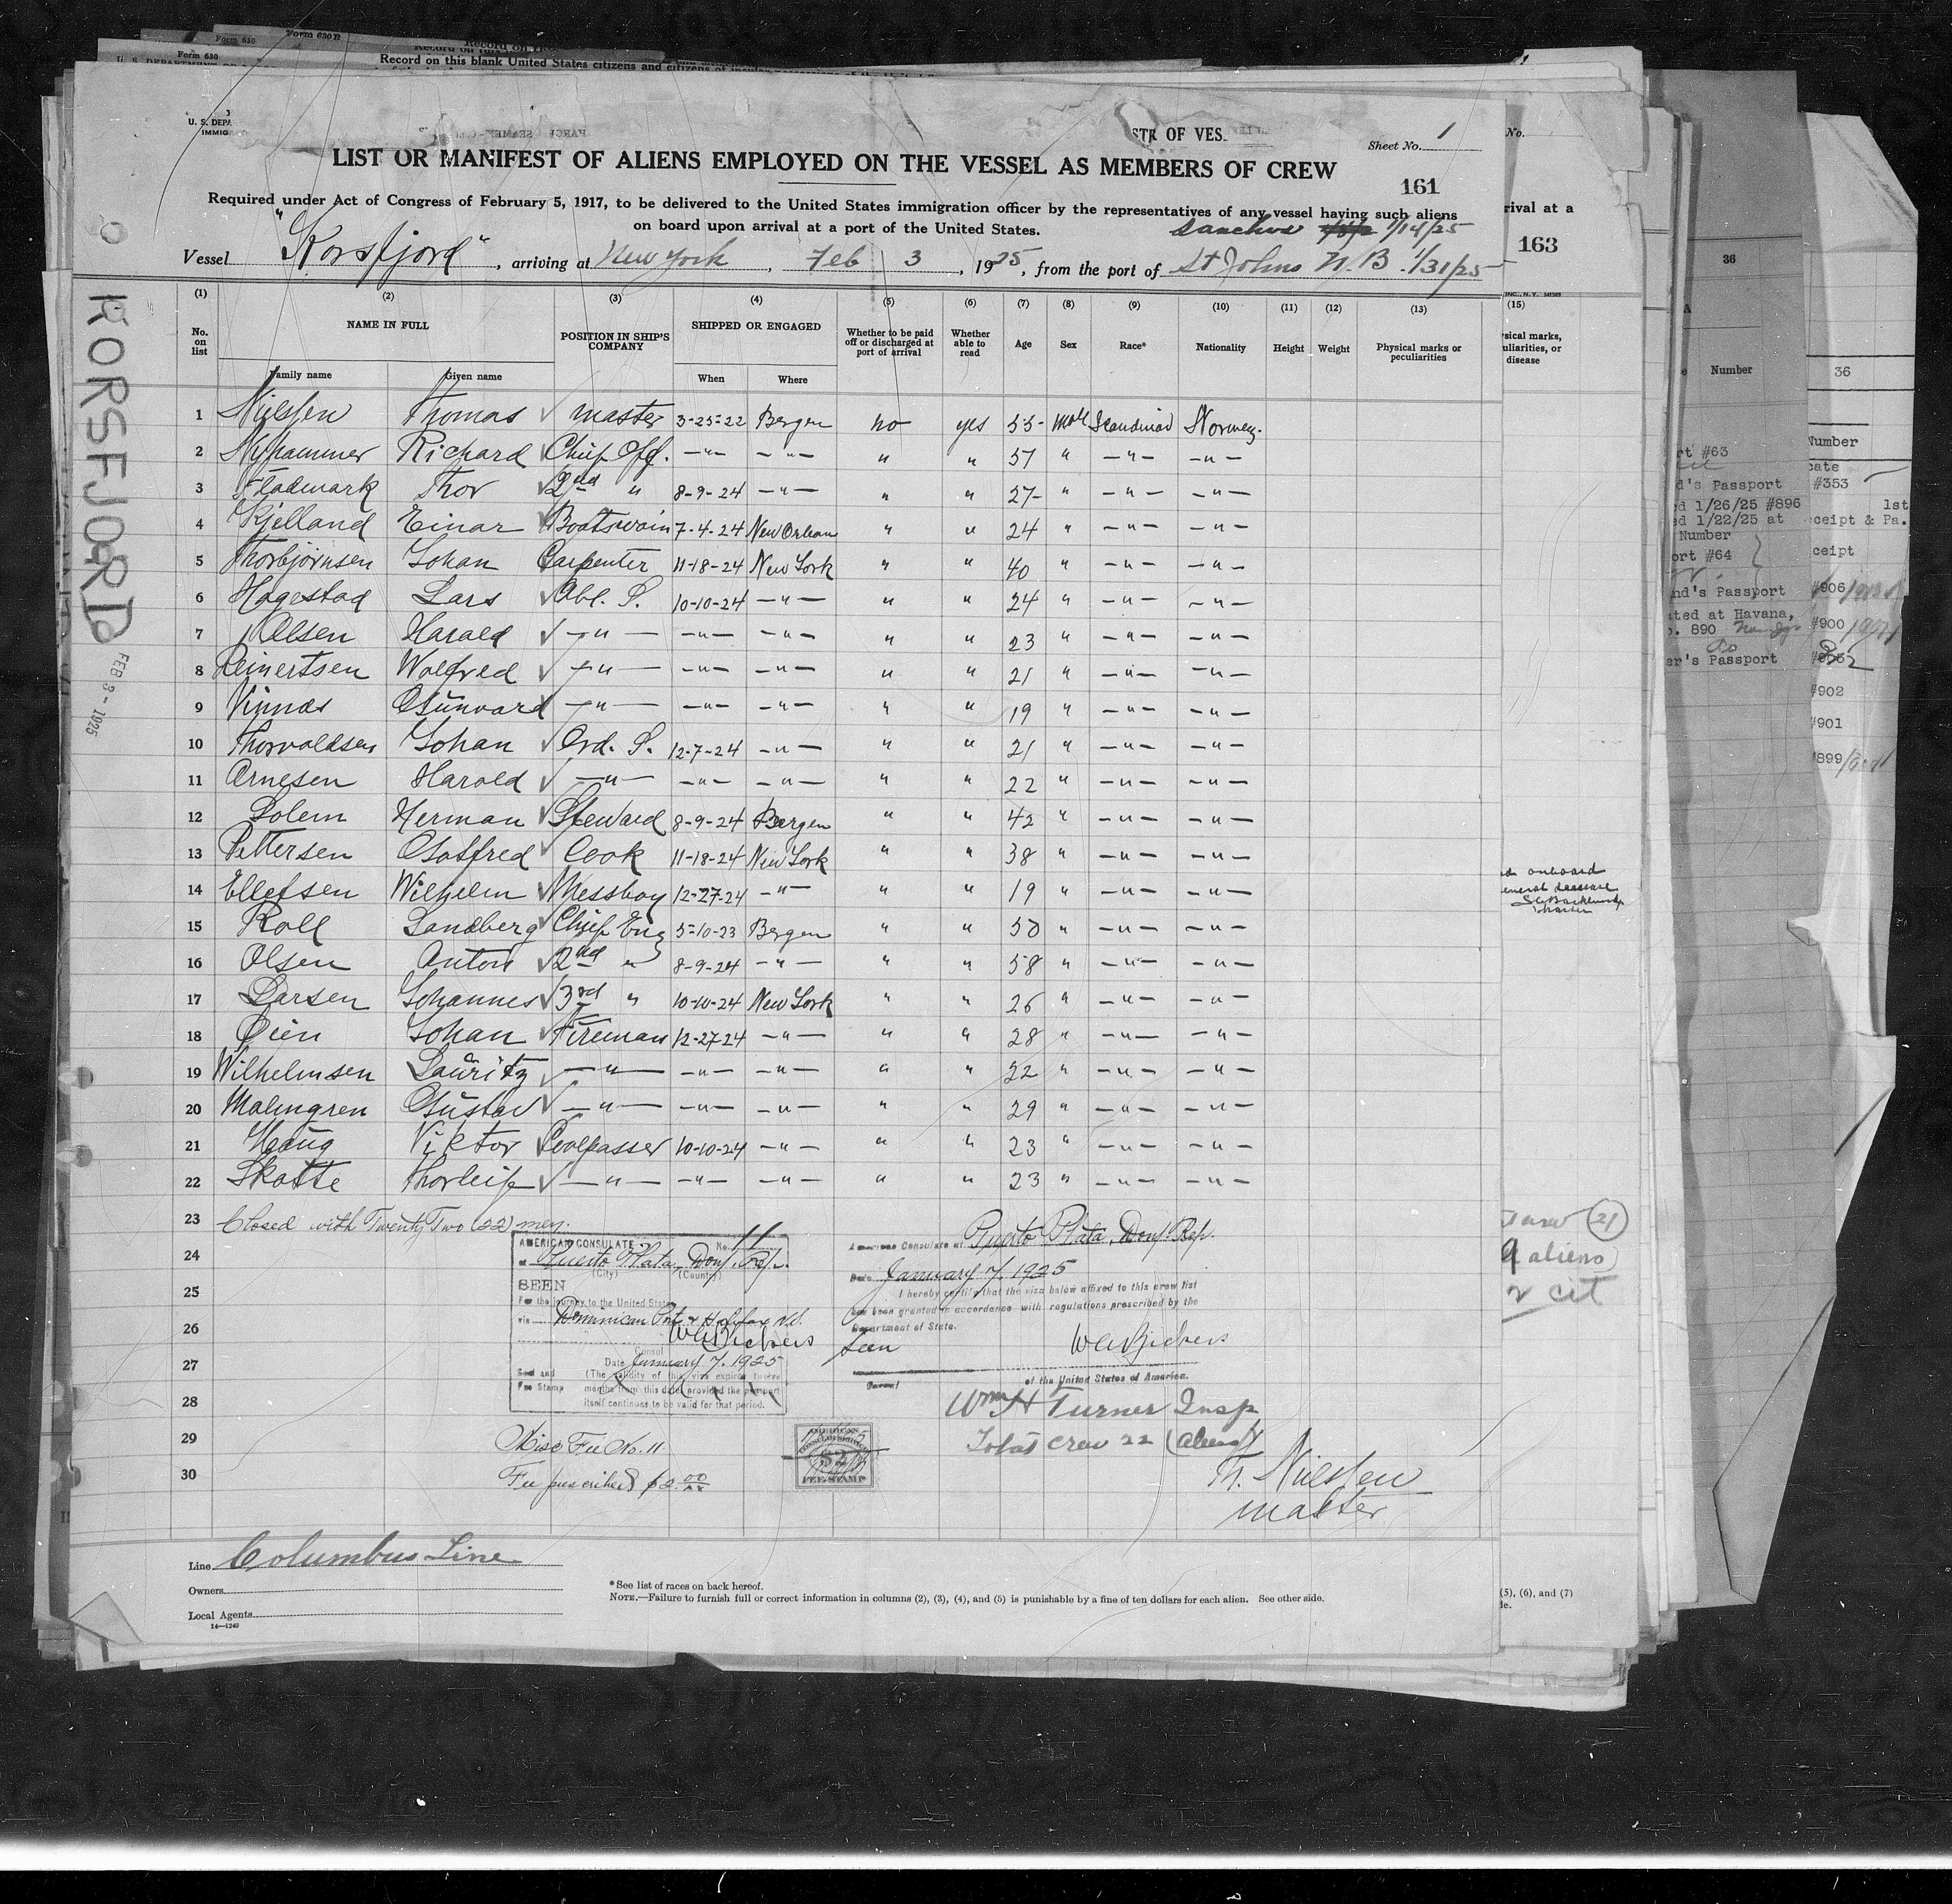 Form 630
Form 630B
Record on this blank United States citizens and citizens of insular possessions of the
U. S. DEPA
IMMIG
STR OF VES
Sheet No. 1
LIST OR MANIFEST OF ALIENS EMPLOYED ON THE VESSEL AS MEMBERS OF CREW
161
Required under Act of Congress of February 5, 1917, to be delivered to the United States immigration officer by the representatives of any vessel having such aliens
on board upon arrival at a port of the United States.
Sanchos 1/14/25
Vessel "Korsfjord", arriving at New York, Feb 3, 1925, from the port of St Johns N.B. 1/31/25
KORSFJORD
FEB 3 - 1925
(1) (2) (3) (4) (5) (6) (7) (8) (9) (10) (11) (12) (13)
No. on list NAME IN FULL POSITION IN SHIP'S COMPANY SHIPPED OR ENGAGED Whether to be paid off or discharged at port of arrival Whether able to read Age Sex Race* Nationality Height Weight Physical marks or peculiarities
Family name Given name When Where
1 Nielssen Thomas ✓ master 3-25-22 Bergen no yes 55 Male Scandinav Norweg.
2 Nyhammer Richard Chief Off. —"— —"— " " 57 " —"— —"—
3 Fladmark Thor ✓ 2nd " 8-9-24 —"— " " 27 " —"— —"—
4 Kjelland Einar ✓ Boatswain 7-4-24 New Orleans " " 24 " —"— —"—
5 Thorbjørnsen Johan Carpenter 11-18-24 New York " " 40 " —"— —"—
6 Hagestad Lars ✓ Abl. S. 10-10-24 —"— " " 24 " —"— —"—
7 Olsen Harald ✓ —"— —"— —"— " " 23 " —"— —"—
8 Reinertsen Wolfred ✓ —"— —"— —"— " " 21 " —"— —"—
9 Vinnæs Gunvard —"— —"— —"— " " 19 " —"— —"—
10 Thorvaldsen Johan ✓ Ord. S. 12-7-24 —"— " " 21 " —"— —"—
11 Arnesen Harald ✓ —"— —"— —"— " " 22 " —"— —"—
12 Solem Herman ✓ Steward 8-9-24 Bergen " " 42 " —"— —"—
13 Pettersen Gotfred ✓ Cook 11-18-24 New York " " 38 " —"— —"—
14 Ellefsen Wilhelm ✓ Messboy 12-27-24 —"— " " 19 " —"— —"—
15 Roll Sandberg ✓ Chief Eng 5-10-23 Bergen " " 50 " —"— —"—
16 Olsen Anton ✓ 2nd " 8-9-24 —"— " " 58 " —"— —"—
17 Larsen Johannes ✓ 3rd " 10-10-24 New York " " 26 " —"— —"—
18 Øien Johan ✓ Fireman 12-27-24 —"— " " 28 " —"— —"—
19 Wilhelmsen Lauritz ✓ —"— —"— —"— " " 22 " —"— —"—
20 Malmgren Gustav ✓ —"— —"— —"— " " 29 " —"— —"—
21 Haug Viktor Coalpasser 10-10-24 —"— " " 23 " —"— —"—
22 Skatte Thorleif ✓ —"— —"— —"— " " 23 " —"— —"—
23 Closed with Twenty Two (22) men.
24
25
26
27
28
29
30
AMERICAN CONSULATE No. 11
at Puerto Plata, Dom. Rep.
(City) (Country)
SEEN
For the journey to the United States
via Dominican Ports & Halifax N.S.
W A Bickers
Consul
Date January 7, 1925
Seal and Fee Stamp
(The validity of this visa expires twelve
months from this date provided the passport
itself continues to be valid for that period.
American Consulate at Puerto Plata, Dom. Rep.
Date January 7, 1925
I hereby certify that the visa below affixed to this crew list
has been granted in accordance with regulations prescribed by the
Department of State.
Seen W A Bickers
Consul of the United States of America.
Wm H Turner Insp
Total crew 22 (aliens)
Th. Nielssen
master
Misc Fee No. 11
Fee prescribed $2.00
AMERICAN
CONSULAR SERVICE
$2
FEE STAMP
Line Columbus Line
Owners
Local Agents
14—1240
*See list of races on back hereof.
NOTE.—Failure to furnish full or correct information in columns (2), (3), (4), and (5) is punishable by a fine of ten dollars for each alien. See other side.
No.
rival at a
163
(15)
sical marks,
uliarities, or
disease
onboard
(21)
9 aliens
2 cit
(5), (6), and (7)
36
Number
rt #63
d's Passport
ed 1/26/25 #896
ed 1/22/25 at
Number
ort #64
nd's Passport
ated at Havana,
o. 890
er's Passport
36
Number
cate
#353
1st
ceipt & Pa.
ceipt
#906
#900
#902
#901
#899